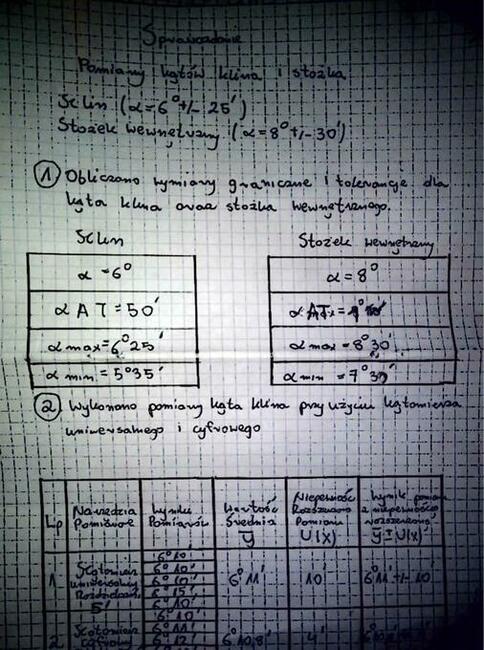 Sprawozdanie
Pomiary kątów klina i stożka
Sclin (α=6°+/- 25')
Stożek wewnętrzny (α=8°+/-30')
① Obliczono wymiary graniczne i tolerancje dla
kąta klina oraz stożka wewnętrznego.
Sclin
α =6°
α AT =50'
α max=6°25'
α min =5°35'
Stożek wewnętrzny
α =8°
α AT =
α max =8°30'
α min =7°30'
② Wykonano pomiary kąta klina przy użyciu kątomierza
uniwersalnego i cyfrowego
Lp
Narzędzia
Pomiarowe
Wyniki
Pomiarów
Wartość
Średnia
y
Niepewność
Rozszerzona
Pomiaru
U(X)
Wynik pomiaru
z niepewnością
rozszerzoną
y±U(X)
1.
uniwersalny
5'
6°10'
6°10'
6°10'
6°15'
6°10'
6°10'
6°11'
10'
6°11'+/-10'
2
cyfrowy
6°11'
6°12'
4'